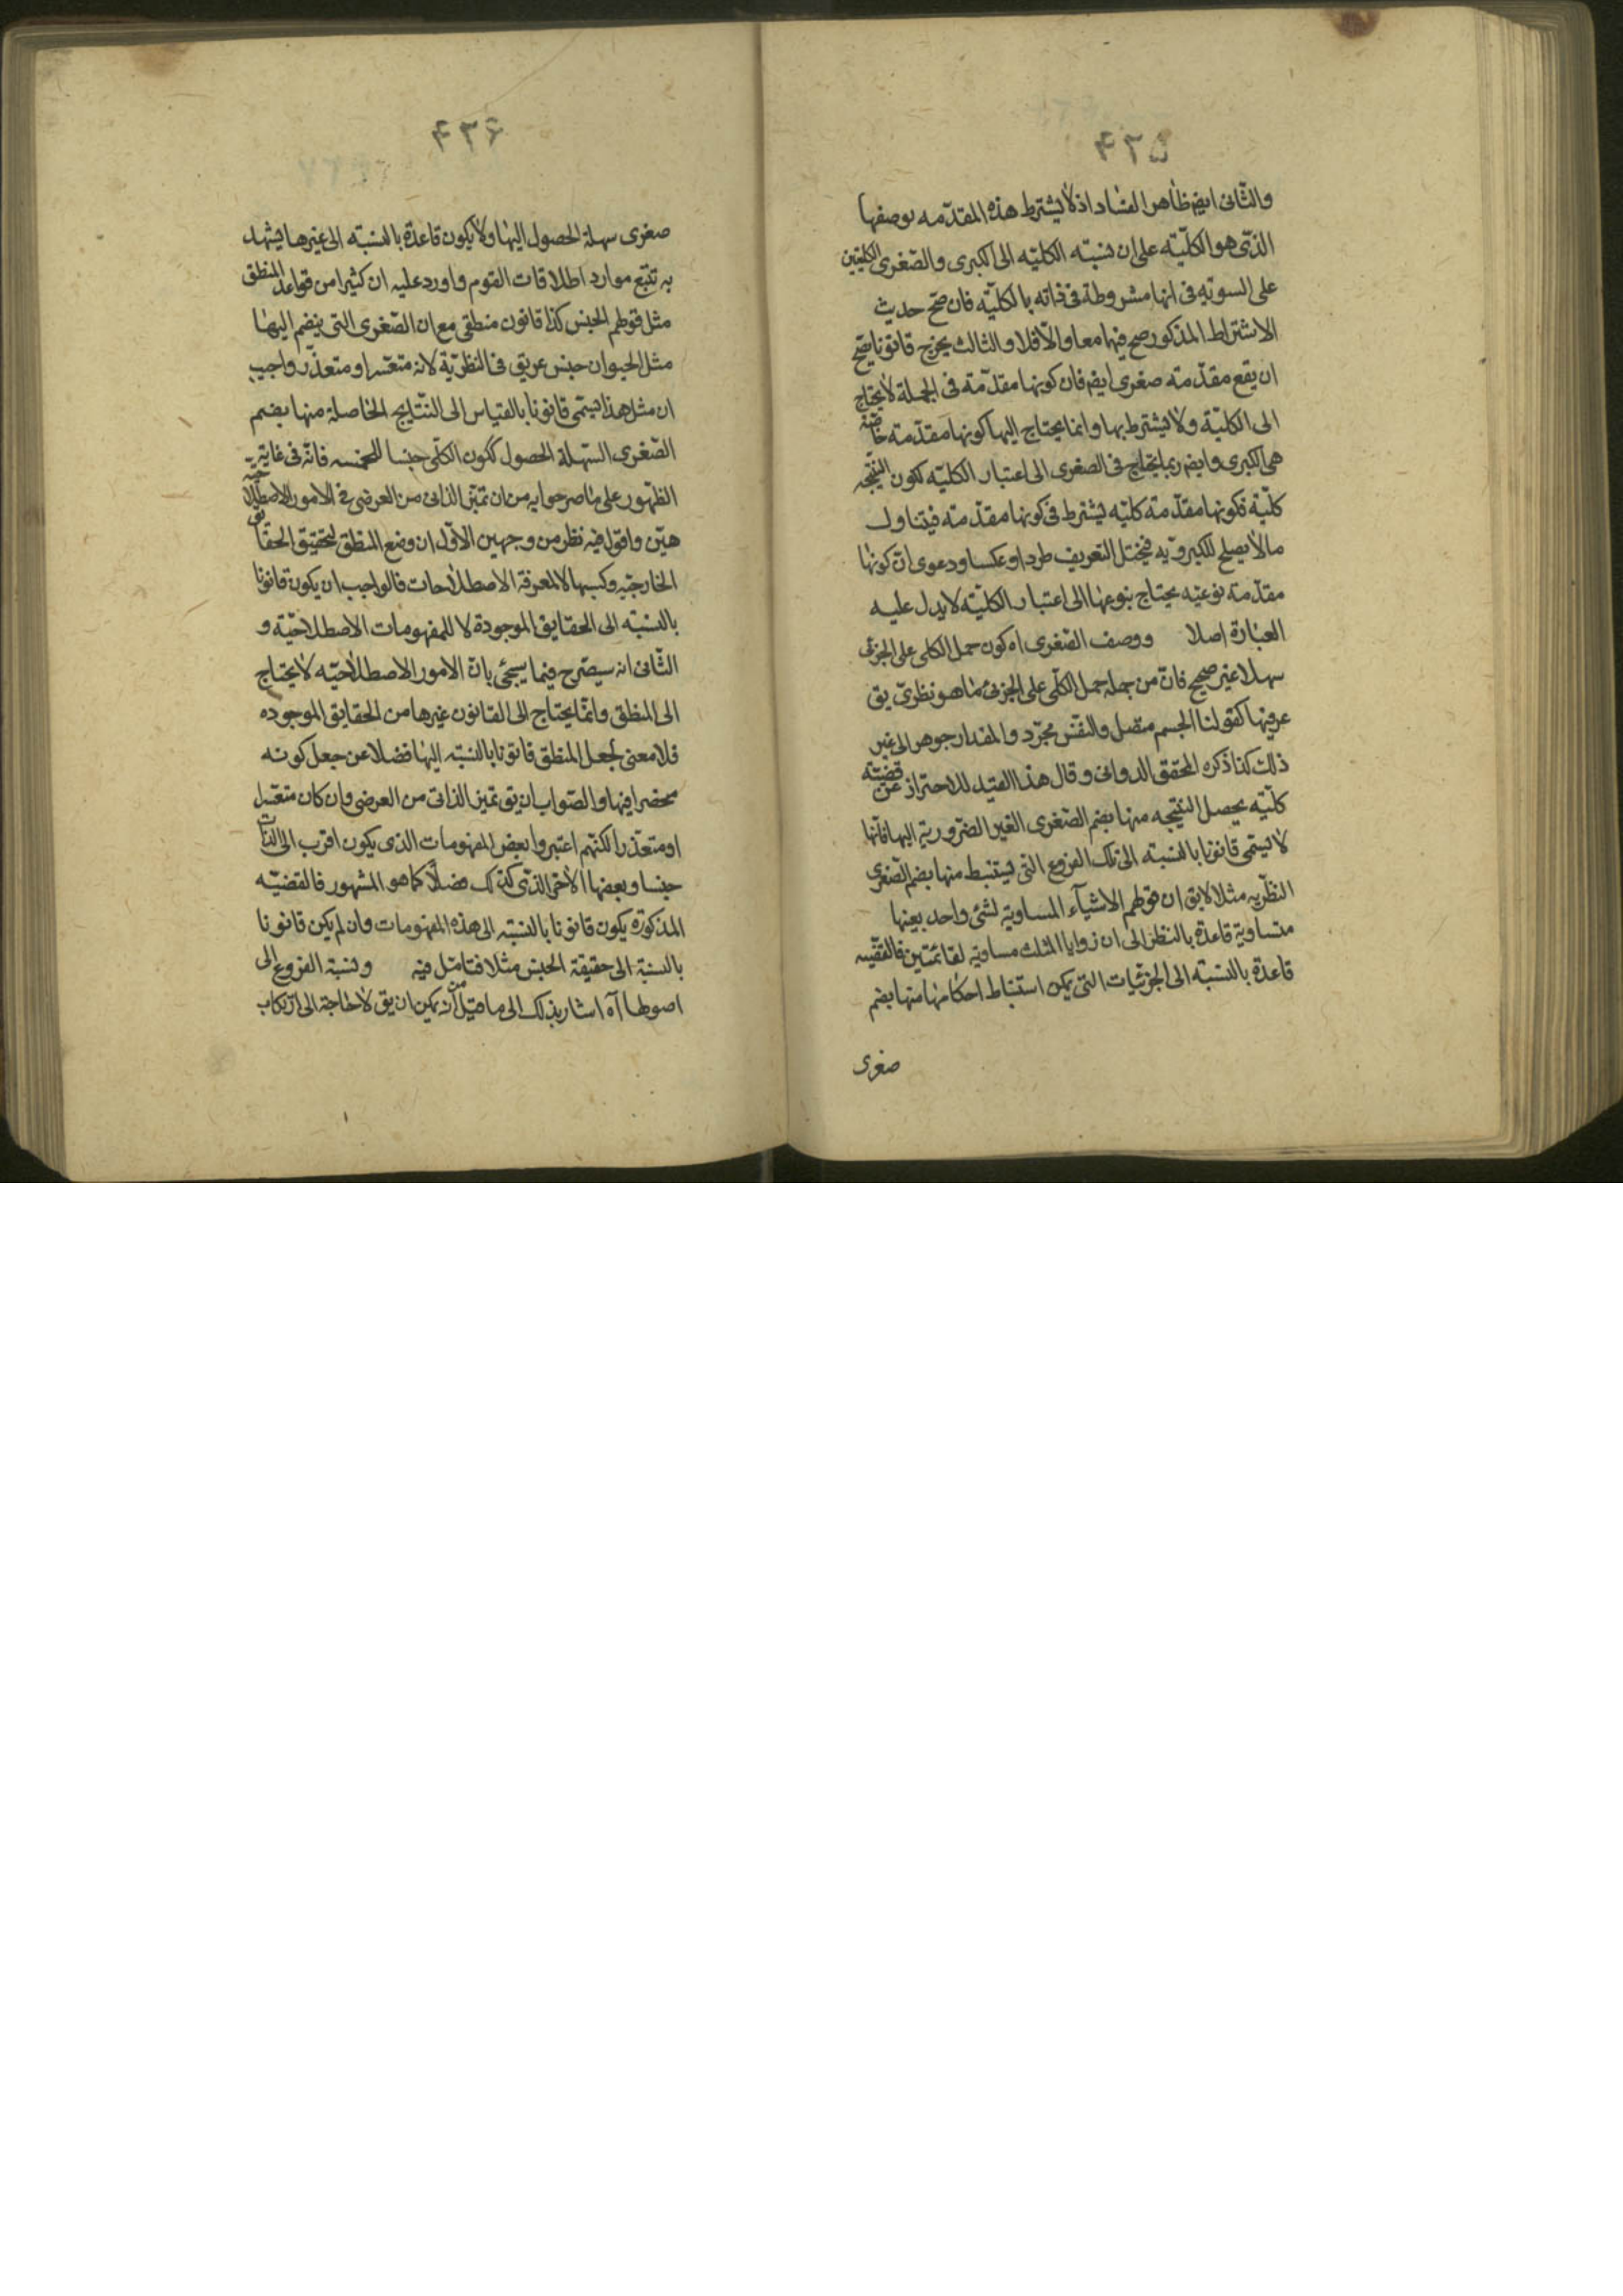 ۴۳۵
والثانى ايضم ظاهر الفساد اذ لا يشترط هذه المقدمه بوصفها
الذى هو الكليّه على ان نسبته الكليّه الى الكبرى والصّغرى الكليتين
على السويّه فى انها مشروطة فى ذاته بالكليّه فان صحّ حديث
الاشتراط المذكور صح فيهما معا والّا فلا والثالث يخرج قانونا يصحّ
ان يقع مقدّمته صغرى ايضم فان كونها مقدّمة فى الجملة لا يحتاج
الى الكليّة ولا يشترط بها وانما يحتاج اليها كونها مقدّمته خاصّة
هى الكبرى وايضم ربما يحتاج فى الصغرى الى اعتبار الكليّه ككون النتيجه
كليّة فكونها مقدّمة كليّه يشترط فى كونها مقدّمته فيتناول
مالا يصلح للكبرويّه فيختل التعريف طردا وعكسا ودعوى انّ كونها
مقدّمة نوعيّه يحتاج بنوعها الى اعتبار الكليّه لا يدل عليه
العبارة اصلا ووصف الصّغرى اه كون حمل الكلى على الجزئى
سهلا غير صحيح فانّ من جملة حمل الكلّى على الجزئى ما هو نظرىّ يق
عرفيها كقولنا الجسم متصل والنفس مجرّد والمقدار جوهر الى غير
ذلك كذا ذكره المحقق الدوانى وقال هذا القيد للاحتراز عن قضيّته
كليّه يحصل النتيجه منها بضم الصّغرى الغير الضّروريّه اليها فانّها
لا يسمّى قانونا بالنسبته الى تلك الفروع التى يستنبط منها بضم الصّغرى
النظريّه مثلا لا يق ان قولهم الاشياء المساوية لشئ واحد بعينها
متساوية قاعدة بالنظر الى ان زوايا المثلث مساويه لقائمتين فالقضّيه
قاعدة بالنسبته الى الجزئيات التى يمكن استنباط احكامها منها بضم
صغرى
۴۳۶
صغرى سهلة الحصول اليها ولا يكون قاعدة بالنسبته الى غيرها يشهد
به تتبّع موارد اطلاقات القوم واورد عليه ان كثيرا من قواعد المنطق
مثل قولهم الجنس كذا قانون منطقى مع ان الصّغرى التى ينضم اليها
مثل الحيوان جنس عريق فى النظريّة لانه متعسّر او متعذّر واجيب
ان مثل هذا يسمّى قانونا بالقياس الى النتايج الحاصلة منها بضم
الصّغرى السّهلة الحصول ككون الكلّى جنسا للخمسه فانّه فى غاية
الظهور على ما صرحوا به من ان تميّز الذاتى من العرضى فى الامور الاصطلاحيّه
هيّن واقول فيه نظر من وجهين الاوّل ان وضع المنطق لتحقيق الحقايق
الخارجيّه وكسبها لا لمعرفة الاصطلاحات فالواجب ان يكون قانونا
بالنسبته الى الحقايق الموجودة لا للمفهومات الاصطلاحيّة و
الثّانى انه سيصّرح فيما سيجئ بانّ الامور الاصطلاحيّه لا يحتاج
الى المنطق وانّما يحتاج الى القانون غيرها من الحقايق الموجوده
فلا معنى لجعل المنطق قانونا بالنسبته اليها فضلا عن جعل كونه
مخصرا فيها والصّواب ان يق تميز الذاتى من العرضى وان كان متعسّرا
او متعذّرا لكنّهم اعتبروا بعض المفهومات الذى يكون اقرب الى الذّات
جنسا وبعضها الاخر الذّى كذلك فصلا كما هو المشهور فالقضيّه
المذكورة يكون قانونا بالنسبته الى هذه المفهومات وان لم يكن قانونا
بالنسبة الى حقيقة الجنس مثلا فتامّل فيه ونسبة الفروع الى
اصولها آه اشار بذلك الى ما قيل من انه يمكن ان يق لا حاجة الى ارتكاب